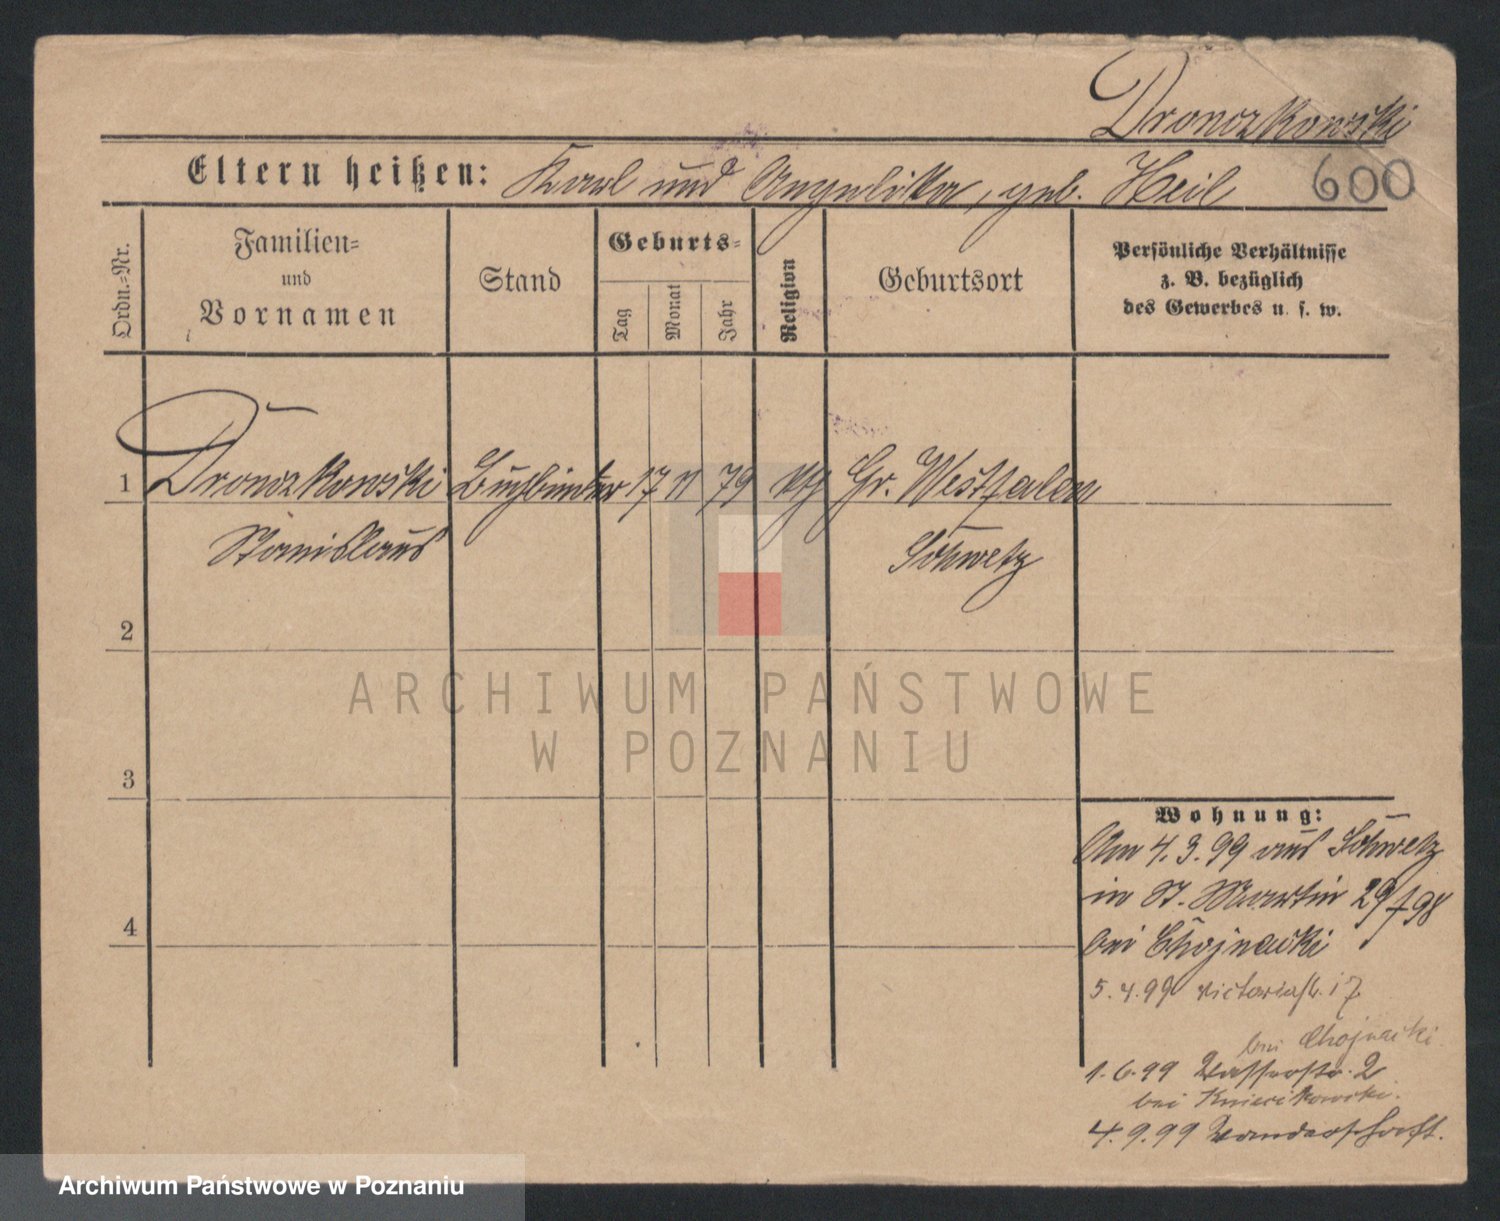 Dronczkowski
Eltern heißen: Karl und Angelika, geb. Heil
600
Ordn.-Nr.
Familien-
und
Vornamen
Stand
Geburts-
Tag
Monat
Jahr
Religion
Geburtsort
Persönliche Verhältnisse
z. B. bezüglich
des Gewerbes u. s. w.
1 Dronczkowski Buchbinder 17 11 79 kth Gr. Westfalen
Stanislaus Schwetz
2
3
4
Wohnung:
Am 4.3.99 aus Schwetz
in St. Martin 29/7 98
bei Chojnacki
5.4.99 Victoriastr. 17
bei Chojnacki
1.6.99 Wasserstr. 2
bei
4.9.99 Wanderschaft.
ARCHIWUM PAŃSTWOWE
W POZNANIU
Archiwum Państwowe w Poznaniu